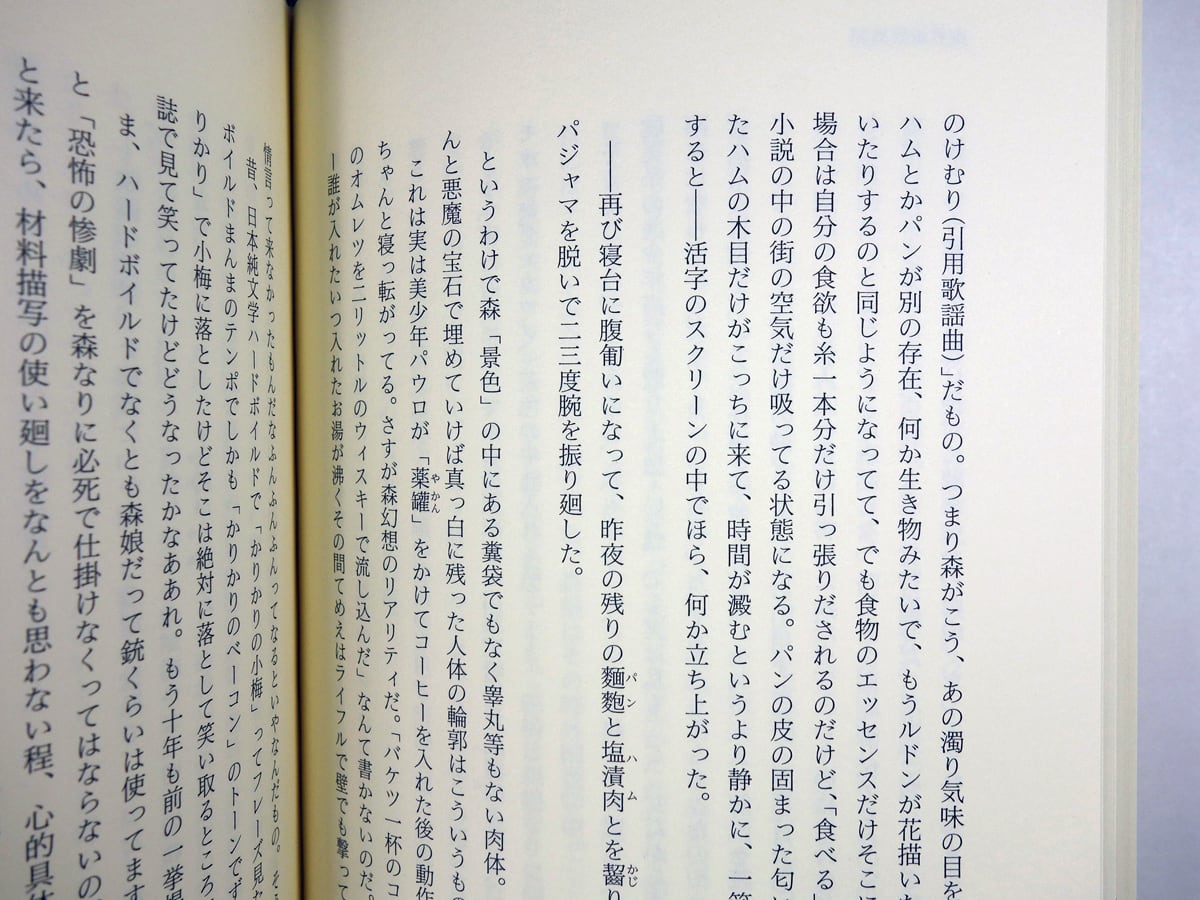 のけむり（引用歌謡曲）」だもの。つまり森がこう、あの濁り気味の目を
ハムとかパンが別の存在、何か生き物みたいで、もうルドンが花描いた
いたりするのと同じようになってて、でも食物のエッセンスだけそこに
場合は自分の食欲も糸一本分だけ引っ張りだされるのだけど、「食べる」
小説の中の街の空気だけ吸ってる状態になる。パンの皮の固まった匂い
たハムの木目だけがこっちに来て、時間が澱むというより静かに、一
すると――活字のスクリーンの中でほら、何か立ち上がった。
――再び寝台に腹匍いになって、昨夜の残りの麵麭と塩漬肉とを齧り
パジャマを脱いで二三度腕を振り廻した。
というわけで森「景色」の中にある糞袋でもなく睾丸等もない肉体。
んと悪魔の宝石で埋めていけば真っ白に残った人体の輪郭はこういうもの
これは実は美少年パウロが「薬罐」をかけてコーヒーを入れた後の動作
ちゃんと寝っ転がってる。さすが森幻想のリアリティだ。「バケツ一杯のコ
のオムレツを二リットルのウィスキーで流し込んだ」なんて書かないのだ。
ー誰が入れたいつ入れたお湯が沸くその間てめえはライフルで壁でも撃って
情言って来なかったもんだなふんふんふんってなるといやなんだもの。そ
昔、日本純文学ハードボイルドで「かりかりの小梅」ってフレーズ見
ボイルドまんまのテンポでしかも「かりかりのベーコン」のトーンでず
りかり」で小梅に落としたけどそこは絶対に落として笑い取るところ
誌で見て笑ってたけどどうなったかなああれ。もう十年も前の一挙掲
ま、ハードボイルドでなくとも森娘だって銃くらいは使ってます
と「恐怖の惨劇」を森なりに必死で仕掛けなくってはならないの
と来たら、材料描写の使い廻しをなんとも思わない程、心的具体